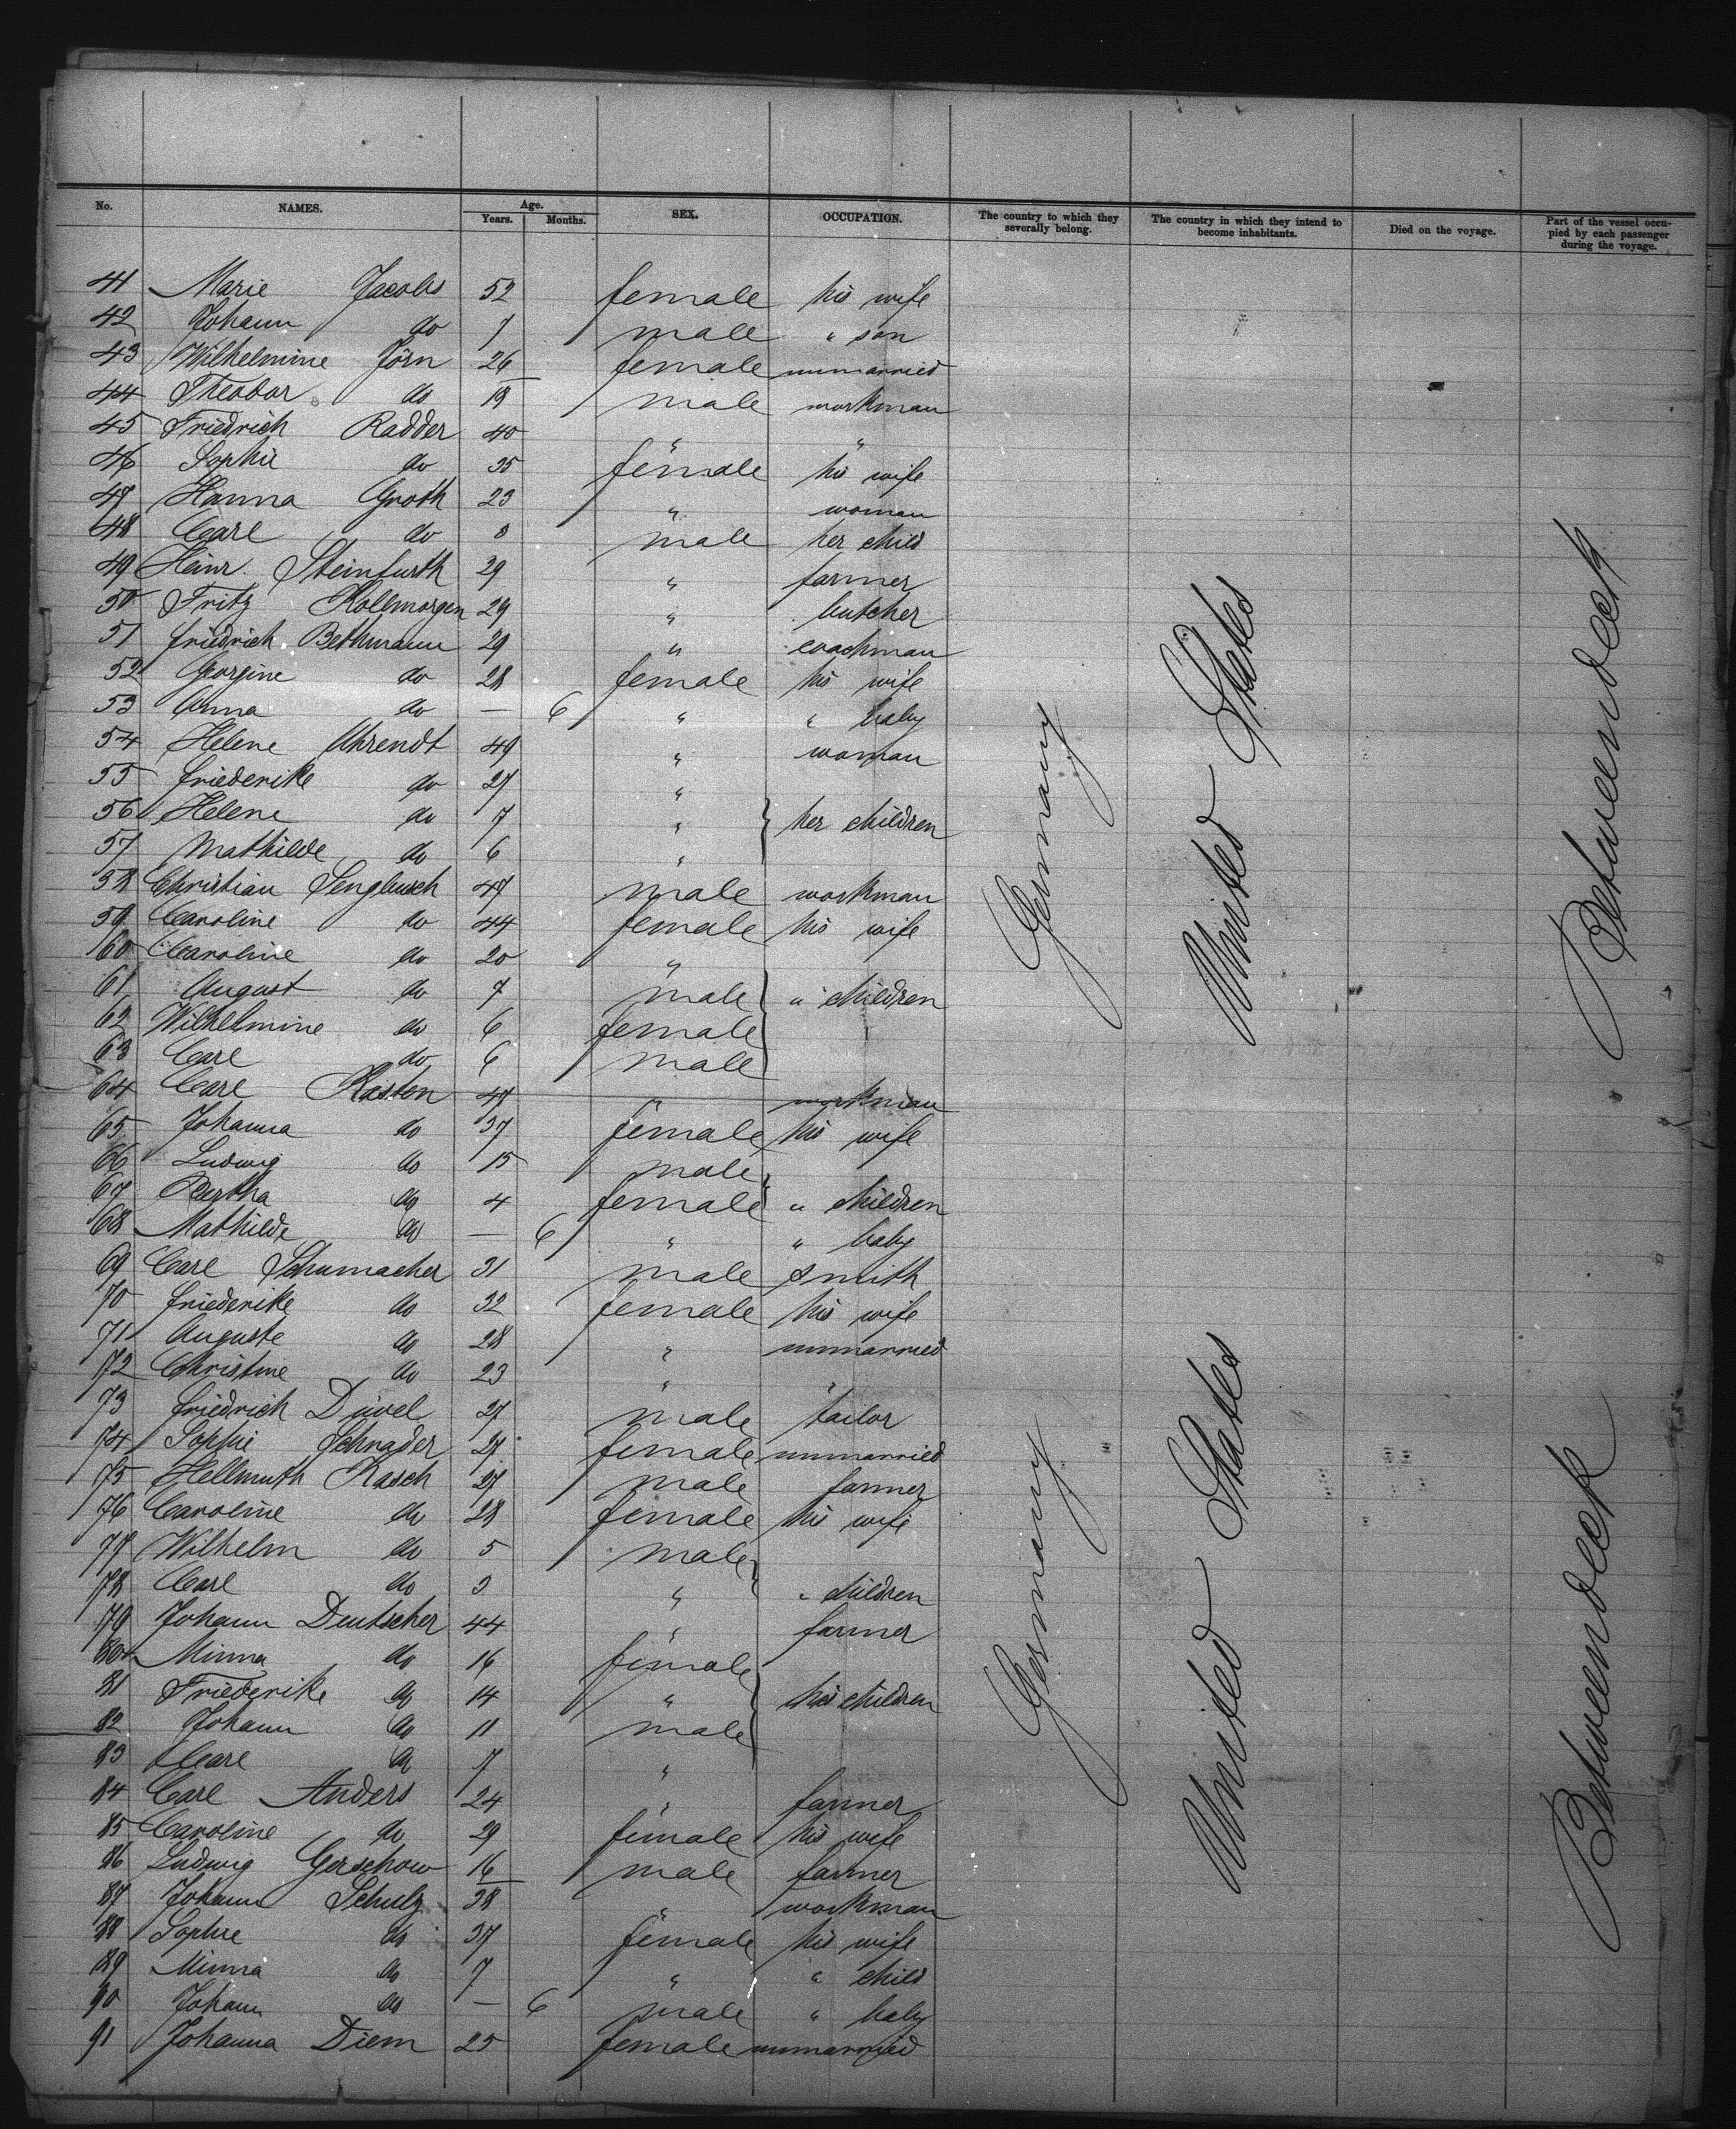 No. NAMES. Age. Years. Months. SEX. OCCUPATION. The country to which they severally belong. The country in which they intend to become inhabitants. Died on the voyage. Part of the vessel occupied by each passenger during the voyage.
41 Marie Jacobs 52 female his wife
42 Johann do 7 male " son
43 Wilhelmine Jörn 26 female unmarried
44 Theodor do 19 male workman
45 Friedrich Radder 40 " "
46 Sophie do 35 female his wife
47 Hanna Groth 23 " woman
48 Carl do 8 male her child
49 Heinr Steinfurth 29 " farmer
50 Fritz Kollmorgen 29 " butcher
51 Friedrich Bethmann 29 " coachman
52 Georgine do 28 female his wife
53 Anna do — 6 " " baby
54 Helene Ahrendt 49 " woman
55 Friederike do 27 "
56 Helene do 7 " her children
57 Mathilde do 6 "
58 Christian Sengbusch 47 male workman
59 Caroline do 44 female his wife
60 Caroline do 20 "
61 August do 7 male " children
62 Wilhelmine do 6 female
63 Carl do 6 male
64 Carl Kasten 47 " workman
65 Johanna do 37 female his wife
66 Ludwig do 15 male
67 Bertha do 4 female " children
68 Mathilde do — 6 " " baby
69 Carl Schumacher 31 male smith
70 Friederike do 32 female his wife
71 Auguste do 28 " unmarried
72 Christine do 23 " "
73 Friedrich Düvel 27 male tailor
74 Sophie Schrader 27 female unmarried
75 Hellmuth Kasch 27 male farmer
76 Caroline do 28 female his wife
77 Wilhelm do 5 male
78 Carl do 3 " " children
79 Johann Deutscher 44 " farmer
80 Minna do 16 female
81 Friederike do 14 " his children
82 Johann do 11 male
83 Carl do 7 "
84 Carl Anders 24 " farmer
85 Caroline do 29 female his wife
86 Ludwig Gerschow 16 male farmer
87 Johann Schulz 38 " workman
88 Sophie do 37 female his wife
89 Minna do 7 " " child
90 Johann do — 6 male " baby
91 Johanna Diem 25 female unmarried
Germany
United States
Betweendeck
Germany
United States
Betweendeck